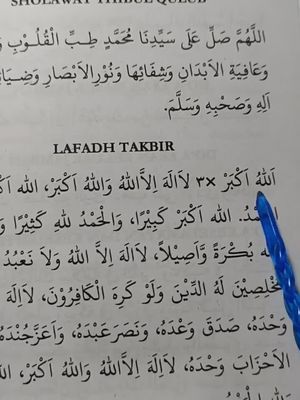 SHOLAWAT THIBUL QULUB
اَللّٰهُمَّ صَلِّ عَلَى سَيِّدِنَا مُحَمَّدٍ طِبِّ الْقُلُوْبِ وَ
وَعَافِيَةِ الْاَبْدَانِ وَشِفَائِهَا وَنُوْرِ الْاَبْصَارِ وَضِيَائِ
اٰلِهِ وَصَحْبِهِ وَسَلَّمَ.
LAFADH TAKBIR
اَللهُ اَكْبَرْ ×٣ لَااِلَهَ اِلاَّاللهُ وَاللهُ اَكْبَرْ، الله اَكْ
الْحَمْدُ. الله اَكْبَرْ كَبِيْرًا، وَالْحَمْدُ لِلهِ كَثِيْرًا وَ
بُكْرَةً وَّاَصِيْلًا، لَااِلَهَ اِلاَّ اللهُ وَلَا نَعْبُدُ
مُخْلِصِيْنَ لَهُ الدِّيْنَ وَلَوْ كَرِهَ الْكَافِرُوْنَ، لَااِلَهَ
وَحْدَهُ، صَدَقَ وَعْدَهُ، وَنَصَرَ عَبْدَهُ، وَاَعَزَّجُنْدَهُ
الْاَحْزَابَ وَحْدَهُ، لَااِلَهَ اِلاَّاللهُ وَاللهُ اَكْبَرْ، الله